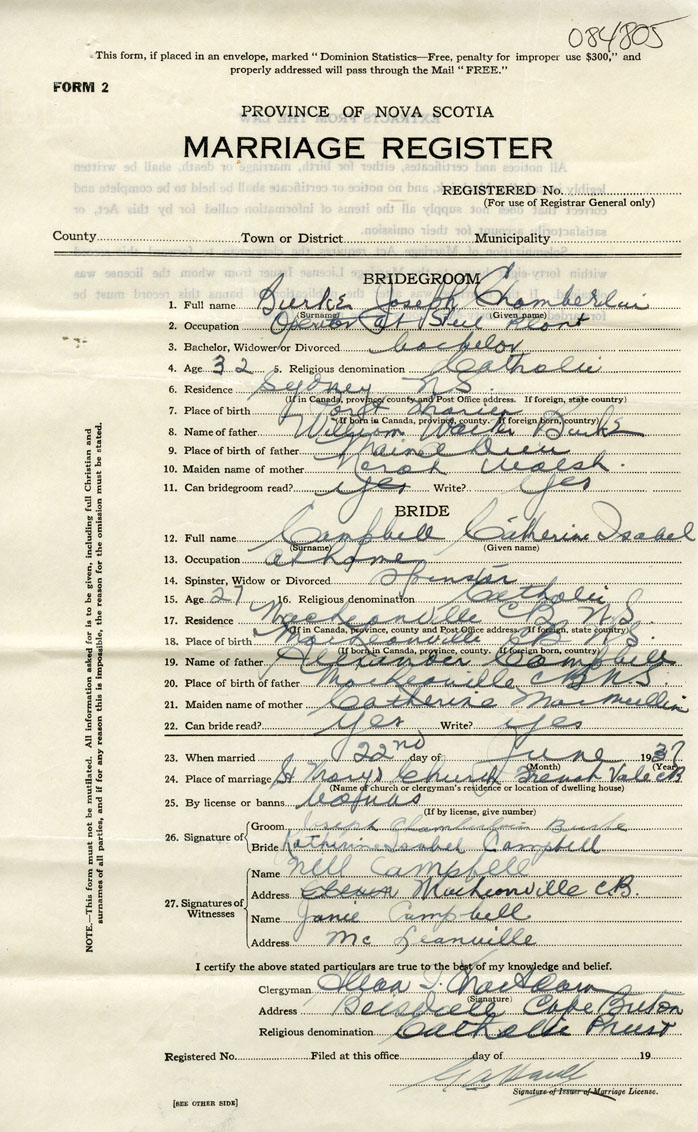 084805
This form, if placed in an envelope, marked "Dominion Statistics—Free, penalty for improper use $300," and
properly addressed will pass through the Mail "FREE."
FORM 2
PROVINCE OF NOVA SCOTIA
MARRIAGE REGISTER
REGISTERED No.
(For use of Registrar General only)
County Town or District Municipality
BRIDEGROOM
1. Full name Burke Joseph Chamberlain
(Surname) (Given name)
2. Occupation Operator at Steel Plant
3. Bachelor, Widower or Divorced bachelor
4. Age 32 5. Religious denomination Catholic
6. Residence Sydney N.S.
(If in Canada, province, county and Post Office address. If foreign, state country)
7. Place of birth
(If born in Canada, province, county. If foreign born, country)
8. Name of father William Burke
9. Place of birth of father
10. Maiden name of mother Norah Walsh.
11. Can bridegroom read? yes Write? yes
BRIDE
12. Full name Campbell Catherine Isabel
(Surname) (Given name)
13. Occupation at home
14. Spinster, Widow or Divorced Spinster
15. Age 27 16. Religious denomination Catholic
17. Residence C.B. N.S.
(If in Canada, province, county and Post Office address. If foreign, state country)
18. Place of birth C.B. N.S.
(If born in Canada, province, county. If foreign born, country)
19. Name of father Alexander Campbell
20. Place of birth of father C.B. N.S.
21. Maiden name of mother Catherine MacMullin
22. Can bride read? yes Write? yes
23. When married 22nd day of June 1937
(Month) (Year)
24. Place of marriage St Mary's Church French Vale CB
(Name of church or clergyman's residence or location of dwelling house)
25. By license or banns
(If by license, give number)
26. Signature of
Groom Joseph Chamberlain Burke
Bride Katherine Isabel Campbell
27. Signatures of Witnesses
Name Nell Campbell
Address C.B.
Name Janie Campbell
Address Mc Leanville
I certify the above stated particulars are true to the best of my knowledge and belief.
Clergyman
(Signature)
Address Cape Breton
Religious denomination Catholic Priest
Registered No. Filed at this office day of 19
Signature of Issuer of Marriage License.
[SEE OTHER SIDE]
NOTE.—This form must not be mutilated. All information asked for is to be given, including full Christian and
surnames of all parties, and if for any reason this is impossible, the reason for the omission must be stated.